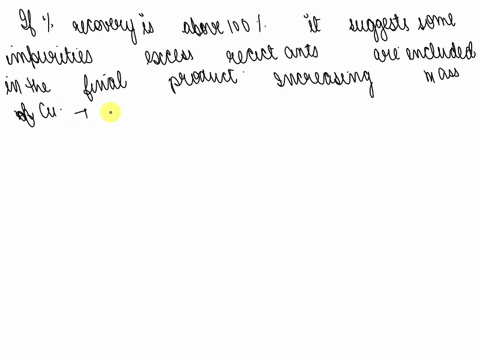 If % recovery is above 100 % it suggests some
impurities excess reactants are included
in the final product increasing mass
of Cu. →